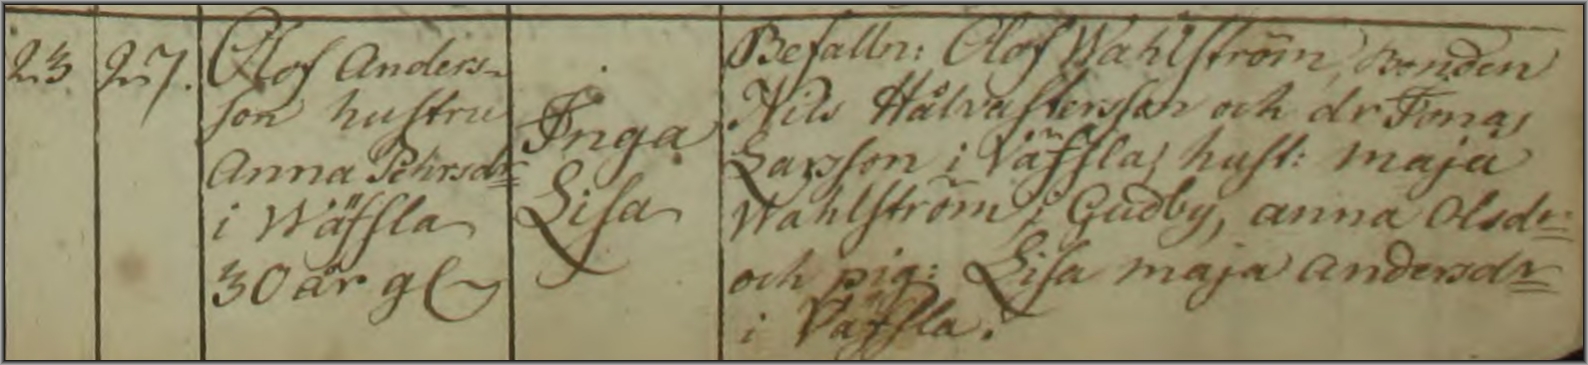 23
27.
Olof Anders-
son hustru
Anna Pehrsdr
i Wäfsla
30 år g
Inga
Lisa
Befalln: Olof Wahlström, Bonden
Nils Hålvastersson och dr Jonas
Larsson i Väfsla, hust: maja
Wahlström i Gudby, anna Olsdr:
och pig: Lisa maja andersdr
i Väfsla.